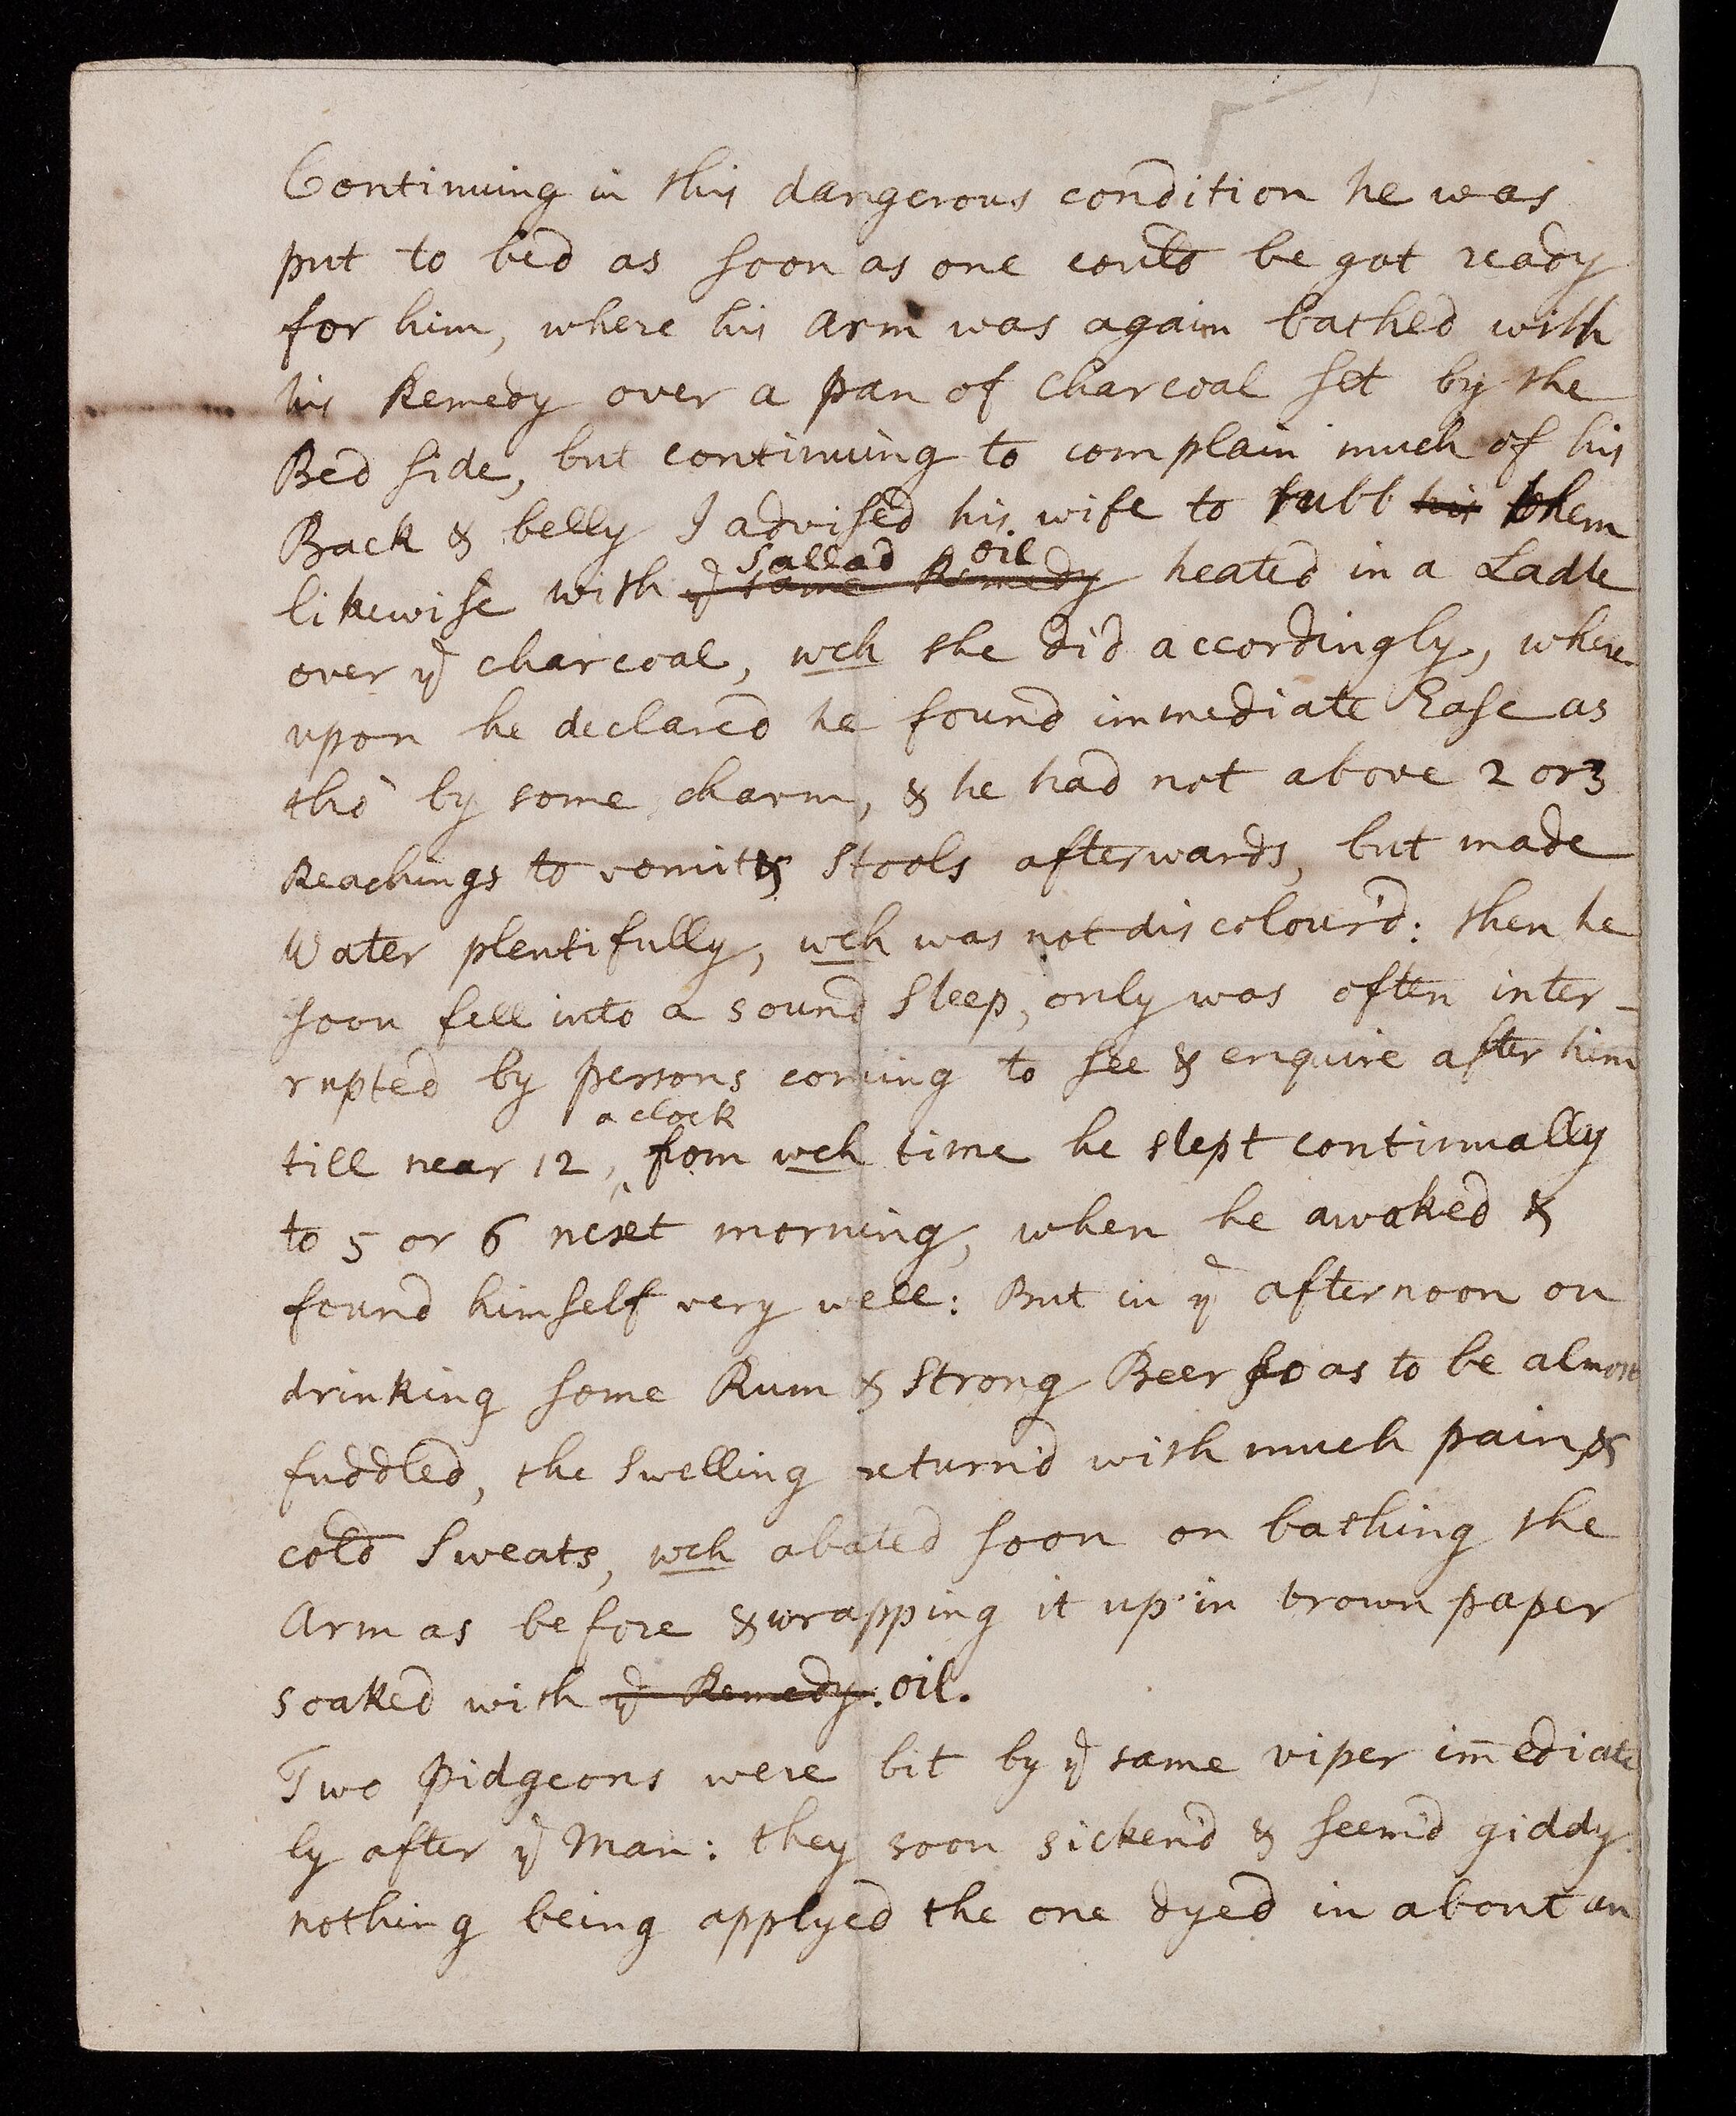 Continuing in this dangerous condition he was
put to bed as soon as one could be got ready
for him, where his arm was again bathed with
his Remedy over a pan of Charcoal set by the
Bed side, but continuing to complain much of his
Back & belly I advised his wife to rubb his them
sallad oil
likewise with ye same Remedy heated in a Ladle
over ye charcoal, wch she did accordingly, where
upon he declared he found immediate Ease as
tho' by some charm, & he had not above 2 or 3
Reachings to vomit & Stools afterwards, but made
Water plentifully, wch was not discolour'd: then he
soon fell into a sound Sleep, only was often inter-
rupted by persons coming to see & enquire after him
a clock
till near 12 ‸, from wch time he slept continually
to 5 or 6 next morning, when he awaked &
found himself very well: But in ye afternoon on
drinking some Rum & Strong Beer so as to be almost
fuddled, the Swelling return'd with much pain, &
cold Sweats, wch abated soon on bathing the
Arm as before & wrapping it up in brown paper
soaked with ye Remedy. oil.
Two Pidgeons were bit by ye same viper im̄ediate
ly after ye Man: they soon sicken'd & seem'd giddy
nothing being applyed the one dyed in about an